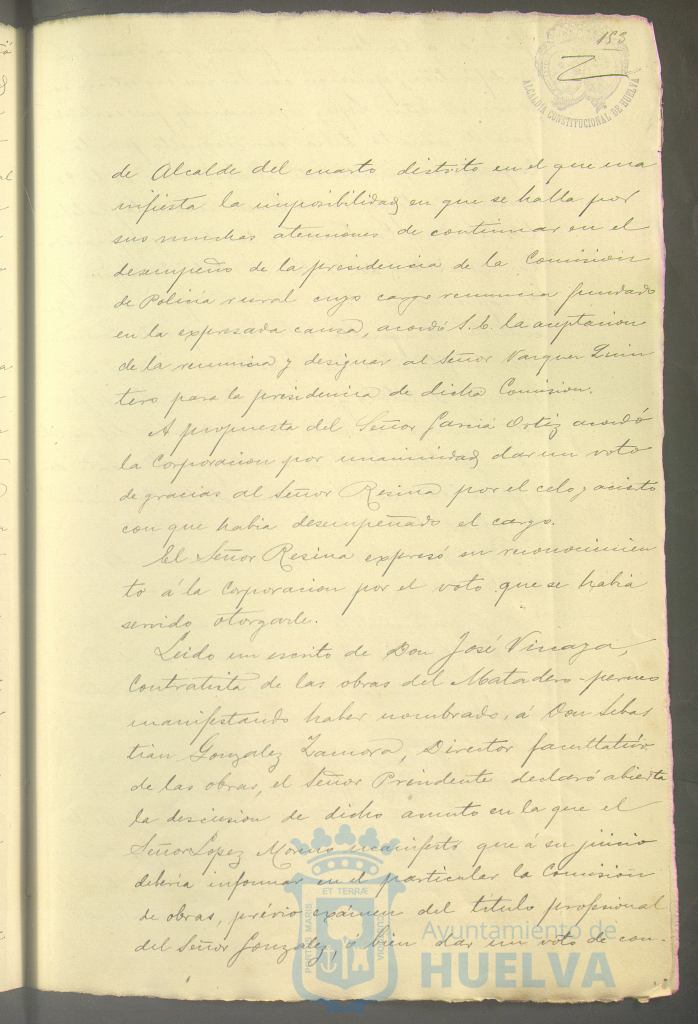 153
ALCALDIA CONSTITUCIONAL DE HUELVA
de Alcalde del cuarto distrito en el que ma
nifiesta la imposibilidad en que se halla por
sus muchas atenciones de continuar en el
desempeño de la presidencia de la Comision
de Policia rural cuyo cargo renuncia fundado
en la expresada causa, acordó S.E. la aceptacion
de la renuncia y designar al Señor Vazquez Quin
tero para la presidencia de dicha Comision.
A propuesta del Señor Garcia Ortiz acordó
la Corporacion por unanimidad dar un voto
de gracias al Señor Resina por el celo y acierto
con que habia desempeñado el cargo.
El Señor Resina expresó su reconocimien
to á la Corporacion por el voto que se habia
servido otorgarle.
Leido un escrito de Don José Vizcaya,
Contratista de las obras del Matadero
manifestando haber nombrado, á Don Sebas
tian Gonzalez Zamora, Director facultativo
de las obras, el Señor Presidente declaró abierta
la descusion de dicho asunto en la que el
Señor Lopez Moreno manifestó que á su juicio
deberia informar en el particular la Comision
de obras, prévio exámen del título profesional
del Señor Gonzalez, ó bien dar un voto de con-
PORTUS MARIS ET TERRÆ CUSTODIA
Ayuntamiento de
HUELVA